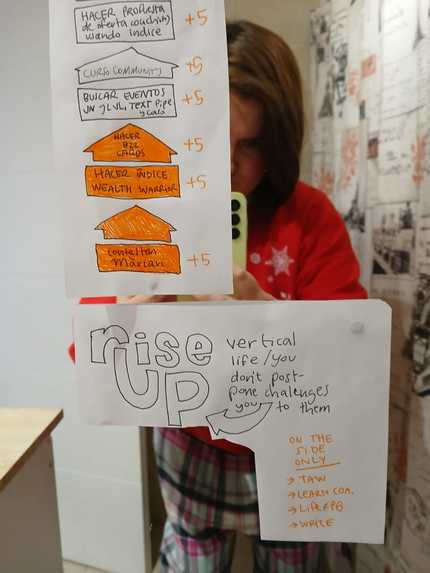 HACER PROPUESTA
de oferta couching
wando indice
+5
CURSO COMMUNITY
+5
BUSCAR EVENTOS
+5
HACER
BIZ
CARDS
+5
HACER ÍNDICE
WEALTH WARRIOR
+5
+5
rise
UP
vertical
life/you
don't post-
pone chalenges
you to them
ON THE
SIDE
ONLY
→ TAW
→ LEARN COM.
→ LIFERPG
→ WRITE